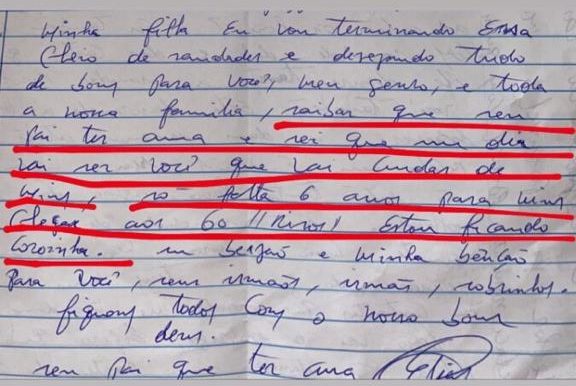 minha filha eu vou terminando Essa
cheio de saudades e desejando tudo
de bom para você, meu genro, e toda
a nossa familia, saibas que seu
pai ter ama e sei que um dia
vai ser você que vai cuidar de
mim, só falta 6 anos para mim
chegar aos 60 (Risos) Estou ficando
coroinha. um beijão e minha benção
para você, seus irmãos, irmãs, sobrinhos.
fiquem todos com o nosso bom
deus.
seu pai que ter ama